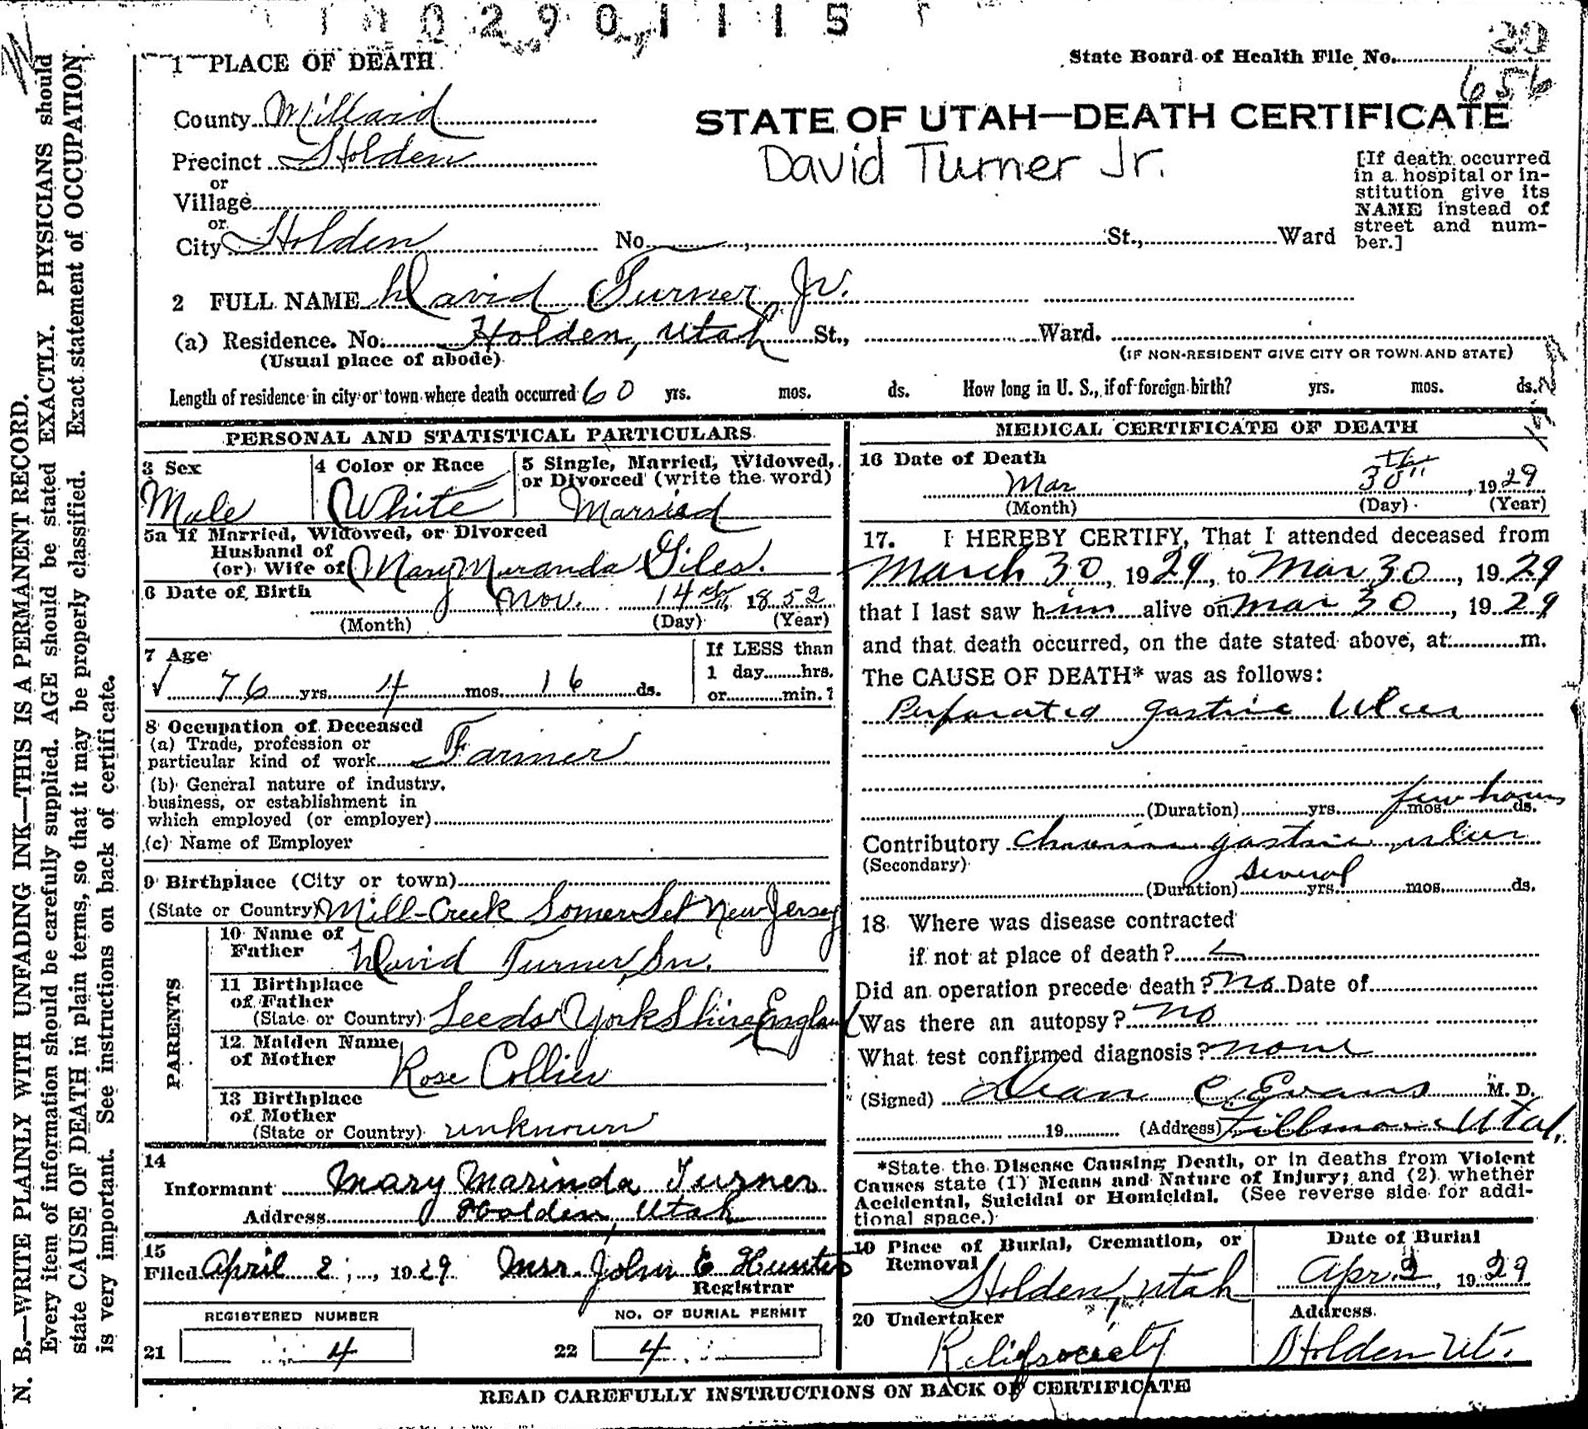 0 2 9 0 1 1 1 5
1 PLACE OF DEATH
State Board of Health File No. 20
656
County Millard
STATE OF UTAH—DEATH CERTIFICATE
Precinct Holden
David Turner Jr.
or
Village
or
City Holden
No. St., Ward
[If death occurred
in a hospital or in-
stitution give its
NAME instead of
street and num-
ber.]
2 FULL NAME David Turner, Jr.
(a) Residence. No. Holden, Utah St., Ward.
(Usual place of abode)
(IF NON-RESIDENT GIVE CITY OR TOWN AND STATE)
Length of residence in city or town where death occurred 60 yrs. mos. ds. How long in U. S., if of foreign birth? yrs. mos. ds.
PERSONAL AND STATISTICAL PARTICULARS
3 Sex
Male
4 Color or Race
White
5 Single, Married, Widowed,
or Divorced (write the word)
Married
5a If Married, Widowed, or Divorced
Husband of
(or) Wife of Mary Muranda Giles.
6 Date of Birth
Nov. 14th 1852
(Month) (Day) (Year)
7 Age
76 yrs. 4 mos. 16 ds.
If LESS than
1 day......hrs.
or......min.?
8 Occupation of Deceased
(a) Trade, profession or
particular kind of work Farmer
(b) General nature of industry,
business, or establishment in
which employed (or employer)
(c) Name of Employer
9 Birthplace (City or town)
(State or Country) Mill-Creek SomerSet New Jersey
PARENTS
10 Name of
Father David Turner, Sr.
11 Birthplace
of Father
(State or Country) Leeds YorkShire England
12 Maiden Name
of Mother Rose Collier
13 Birthplace
of Mother
(State or Country) unknown
14
Informant Mary Marinda Turner
Address Holden, Utah
15
Filed April 2, 1929 Mrs. John E Hunter
Registrar
REGISTERED NUMBER
21 4
NO. OF BURIAL PERMIT
22 4
MEDICAL CERTIFICATE OF DEATH
16 Date of Death
Mar 30th, 1929
(Month) (Day) (Year)
17. I HEREBY CERTIFY, That I attended deceased from
March 30, 1929, to Mar 30, 1929
that I last saw him alive on Mar 30, 1929
and that death occurred, on the date stated above, at m.
The CAUSE OF DEATH* was as follows:
Perforated gastric Ulcer
few hours
(Duration) yrs. mos. ds.
Contributory Chronic gastric ulcer
(Secondary)
several
(Duration) yrs. mos. ds.
18 Where was disease contracted
if not at place of death?
Did an operation precede death? no Date of
Was there an autopsy? no
What test confirmed diagnosis? none
(Signed) Dean C. Evans M. D.
19 (Address) Fillmore Utah.
*State the Disease Causing Death, or in deaths from Violent
Causes state (1) Means and Nature of Injury; and (2) whether
Accidental, Suicidal or Homicidal. (See reverse side for addi-
tional space.)
19 Place of Burial, Cremation, or
Removal
Holden, Utah
Date of Burial
Apr. 2, 1929
20 Undertaker
Relief society
Address
Holden Ut.
READ CAREFULLY INSTRUCTIONS ON BACK OF CERTIFICATE
N. B.—WRITE PLAINLY WITH UNFADING INK—THIS IS A PERMANENT RECORD.
Every item of information should be carefully supplied. AGE should be stated EXACTLY. PHYSICIANS should
state CAUSE OF DEATH in plain terms, so that it may be properly classified. Exact statement of OCCUPATION
is very important. See instructions on back of certificate.